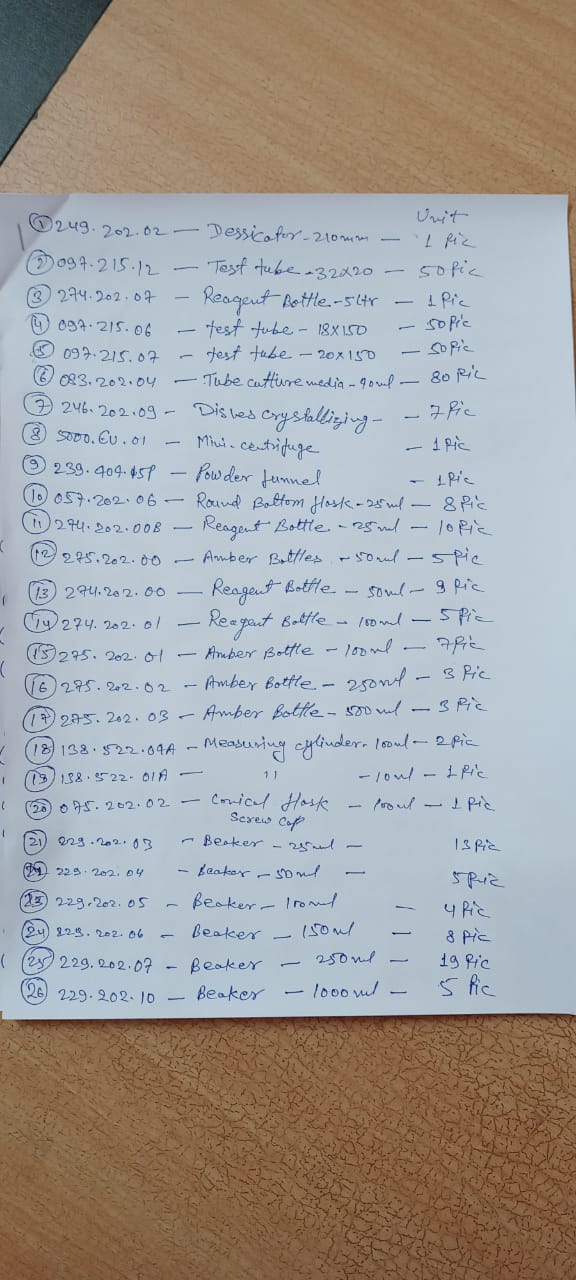 Unit
① 249.202.02 — Dessicator - 210mm — 1 Pic
② 097.215.12 — Test tube - 32x20 — 50 Pic
③ 274.202.07 — Reagent Bottle - 5 Ltr — 1 Pic
④ 097.215.06 — test tube - 18x150 — 50 Pic
⑤ 097.215.07 — test tube - 20x150 — 50 Pic
⑥ 083.202.04 — Tube cultture media - 90ml — 80 Pic
⑦ 246.202.09 — Dishes crystallizing - — 7 Pic
⑧ 5000.EU.01 — Mini-centrifuge — 1 Pic
⑨ 239.404. — Powder funnel — 1 Pic
⑩ 057.202.06 — Round Bottom flask - 25ml — 8 Pic
⑪ 274.202.00B — Reagent Bottle - 25ml — 10 Pic
⑫ 275.202.00 — Amber Bottles - 50ml — 5 Pic
⑬ 274.202.00 — Reagent Bottle — 50ml — 9 Pic
⑭ 274.202.01 — Reagent Bottle — 100ml — 5 Pic
⑮ 275.202.01 — Amber Bottle — 100ml — 7 Pic
⑯ 275.202.02 — Amber Bottle — 250ml — 3 Pic
⑰ 275.202.03 — Amber Bottle — 500ml — 3 Pic
⑱ 138.522.04A — Measuring cylinder - 100ml — 2 Pic
⑲ 138.522.01A — 11 — 10ml — 1 Pic
⑳ 075.202.02 — Conical flask — 100ml — 1 Pic
Screw Cap
㉑ 229.202.03 — Beaker — 25ml — 13 Pic
㉒ 229.202.04 — Beaker — 50ml — 5 Pic
㉓ 229.202.05 — Beaker — 100ml — 4 Pic
㉔ 229.202.06 — Beaker — 150ml — 8 Pic
㉕ 229.202.07 — Beaker — 250ml — 19 Pic
㉖ 229.202.10 — Beaker — 1000ml — 5 Pic